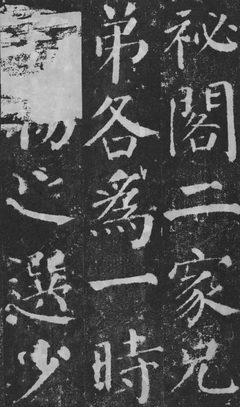 祕閣二家兄
弟各為一時
之選少